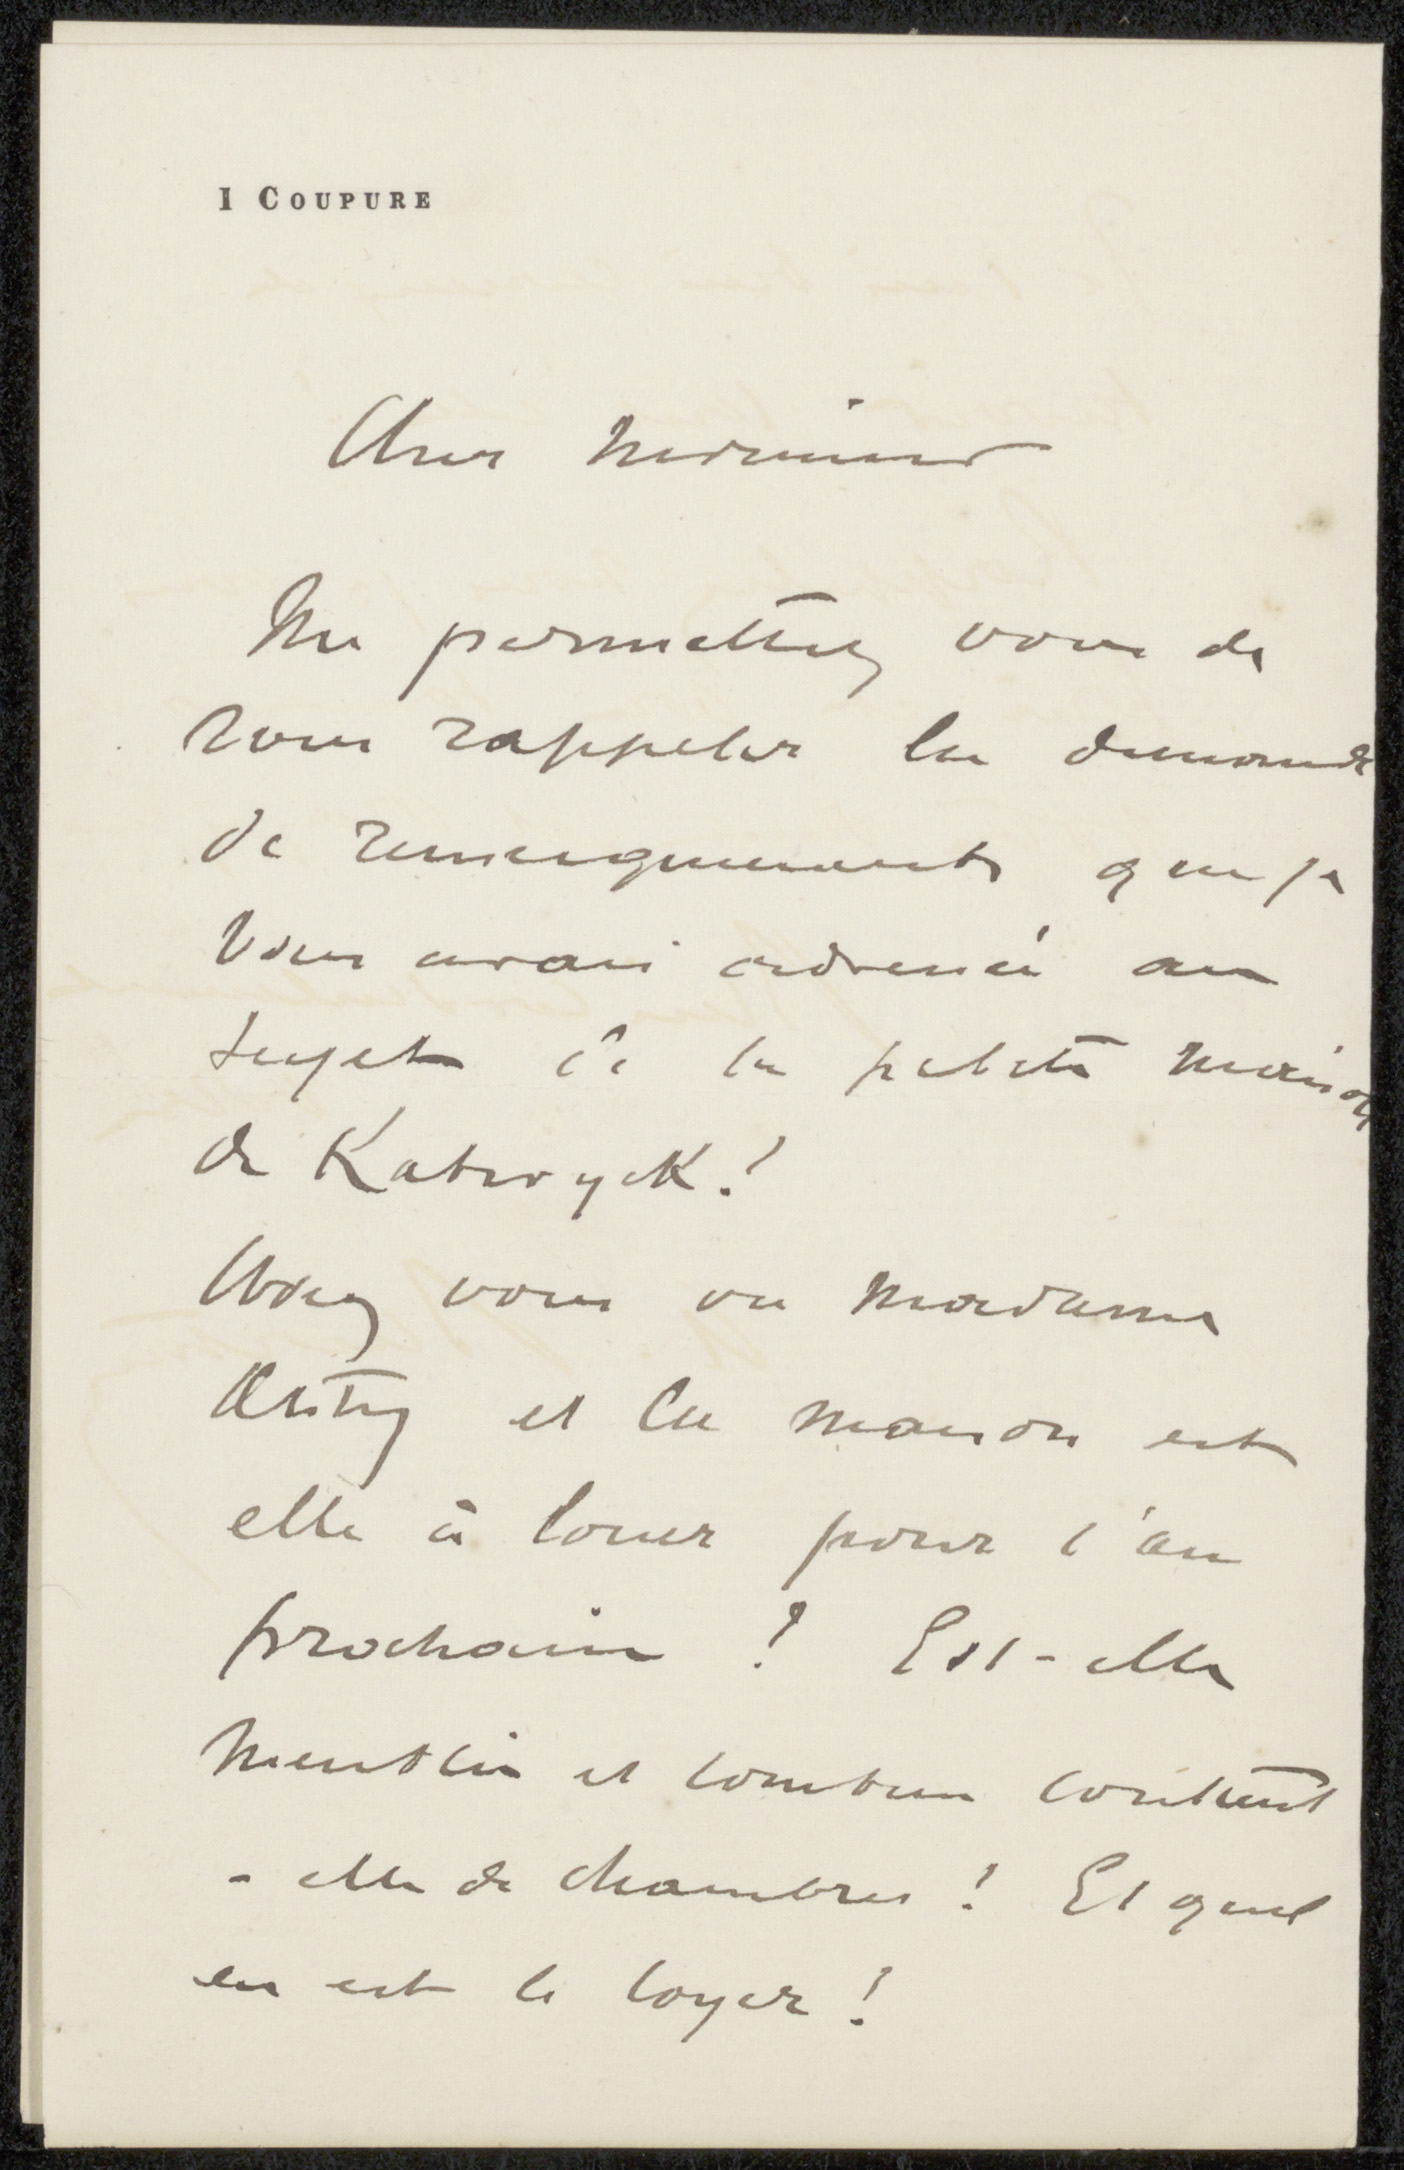 1 COUPURE
Cher Monsieur
Me permettez vous de
vous rappeler la demande
de renseignements que je
vous avais adressé au
sujet de la petite maison
de Katwyck?
Avez vous vu Madame
et la maison est
elle à louer pour l'an
prochain ? Est-elle
meublée et combien contient
- elle de chambres ? Et quel
en est le loyer ?